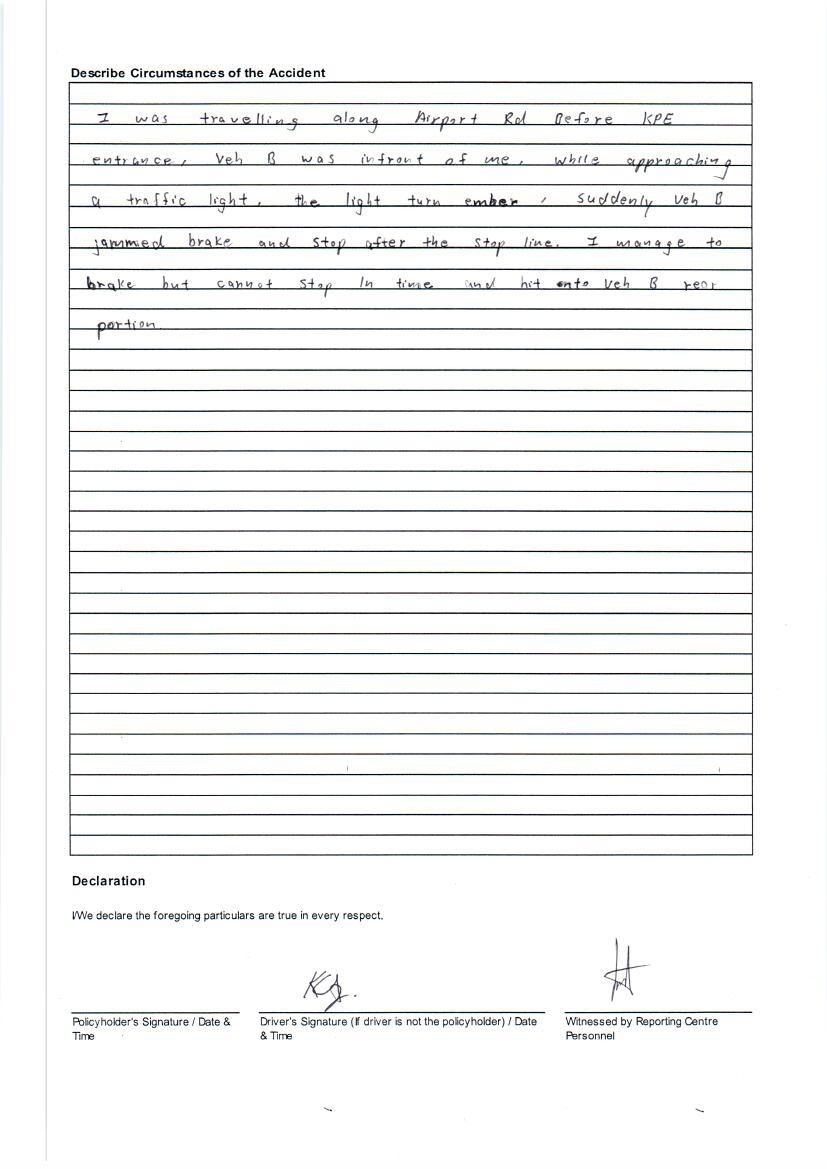 Describe Circumstances of the Accident
I was travelling along Airport Rd Before KPE
entrance, Veh B was infront of me, while approaching
a traffic light, the light turn ember, suddenly Veh B
jammed brake and stop after the stop line. I manage to
brake but cannot stop In time and hit onto Veh B rear
portion
Declaration
I/We declare the foregoing particulars are true in every respect.
Policyholder's Signature / Date & Time
Driver's Signature (If driver is not the policyholder) / Date & Time
Witnessed by Reporting Centre Personnel